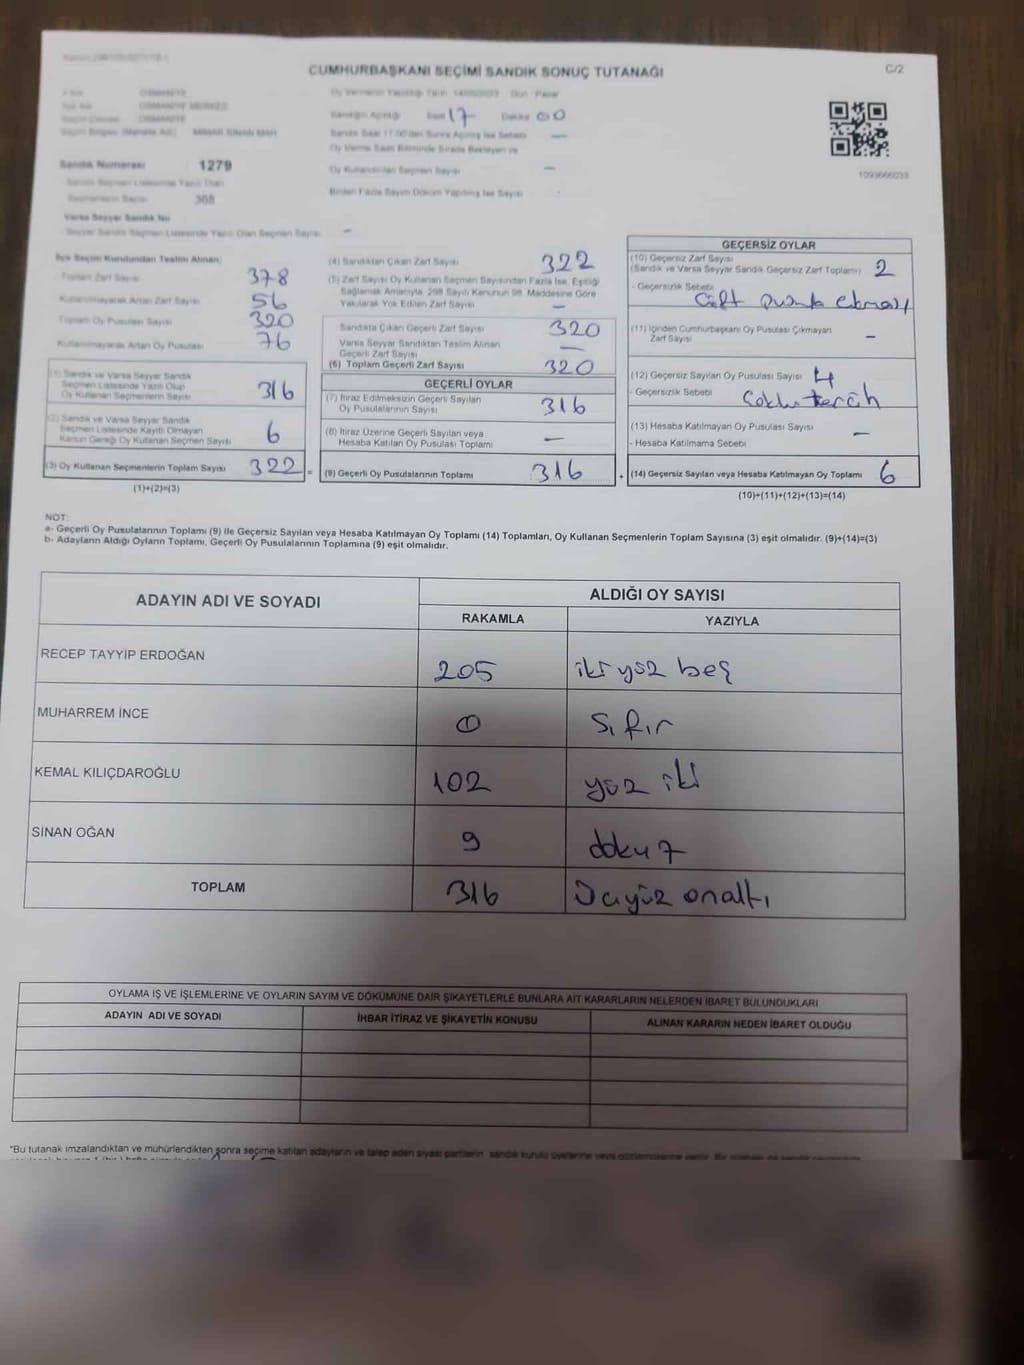 CUMHURBAŞKANI SEÇİMİ SANDIK SONUÇ TUTANAĞI
C/2
Oy Vermenin Yapıldığı Tarih 14/05/2023 Gün Pazar
OSMANİYE
OSMANİYE MERKEZ
OSMANİYE
MİMAR SİNAN MAH
Sandığın Açıldığı Saat 17 Dakika 00
Sandık Saat 17:00'den Sonra Açılmış İse Sebebi —
Oy Verme Saati Bitiminde Sırada Bekleyen ve
Oy Kullandırılan Seçmen Sayısı —
Birden Fazla Sayım Döküm Yapılmış İse Sayısı
1093666033
Sandık Numarası 1279
Sandık Seçmen Listesinde Yazılı Olan
Seçmenlerin Sayısı 368
Varsa Seyyar Sandık No
Seyyar Sandık Seçmen Listesinde Yazılı Olan Seçmen Sayısı —
İlçe Seçim Kurulundan Teslim Alınan;
Toplam Zarf Sayısı 378
Kullanılmayarak Artan Zarf Sayısı 56
Toplam Oy Pusulası Sayısı 320
Kullanılmayarak Artan Oy Pusulası 76
(1) Sandık ve Varsa Seyyar Sandık
Seçmen Listesinde Yazılı Olup
Oy Kullanan Seçmenlerin Sayısı 316
(2) Sandık ve Varsa Seyyar Sandık
Seçmen Listesinde Kayıtlı Olmayan
Kanun Gereği Oy Kullanan Seçmen Sayısı 6
(3) Oy Kullanan Seçmenlerin Toplam Sayısı 322 =
(1)+(2)=(3)
(4) Sandıktan Çıkan Zarf Sayısı 322
(5) Zarf Sayısı Oy Kullanan Seçmen Sayısından Fazla İse, Eşitliği
Sağlamak Amacıyla, 298 Sayılı Kanunun 98. Maddesine Göre
Yakılarak Yok Edilen Zarf Sayısı —
Sandıkta Çıkan Geçerli Zarf Sayısı 320
Varsa Seyyar Sandıktan Teslim Alınan
Geçerli Zarf Sayısı —
(6) Toplam Geçerli Zarf Sayısı 320
GEÇERLİ OYLAR
(7) İtiraz Edilmeksizin Geçerli Sayılan
Oy Pusulalarının Sayısı 316
(8) İtiraz Üzerine Geçerli Sayılan veya
Hesaba Katılan Oy Pusulası Toplamı —
(9) Geçerli Oy Pusulalarının Toplamı 316 +
GEÇERSİZ OYLAR
(10) Geçersiz Zarf Sayısı
(Sandık ve Varsa Seyyar Sandık Geçersiz Zarf Toplamı) 2
- Geçersizlik Sebebi Çift pusula çıkması
(11) İçinden Cumhurbaşkanı Oy Pusulası Çıkmayan
Zarf Sayısı -
(12) Geçersiz Sayılan Oy Pusulası Sayısı 4
- Geçersizlik Sebebi Çoklu tercih
(13) Hesaba Katılmayan Oy Pusulası Sayısı —
- Hesaba Katılmama Sebebi
(14) Geçersiz Sayılan veya Hesaba Katılmayan Oy Toplamı 6
(10)+(11)+(12)+(13)=(14)
NOT:
a- Geçerli Oy Pusulalarının Toplamı (9) ile Geçersiz Sayılan veya Hesaba Katılmayan Oy Toplamı (14) Toplamları, Oy Kullanan Seçmenlerin Toplam Sayısına (3) eşit olmalıdır. (9)+(14)=(3)
b- Adayların Aldığı Oyların Toplamı, Geçerli Oy Pusulalarının Toplamına (9) eşit olmalıdır.
ADAYIN ADI VE SOYADI
ALDIĞI OY SAYISI
RAKAMLA YAZIYLA
RECEP TAYYİP ERDOĞAN 205 iki yüz beş
MUHARREM İNCE 0 Sıfır
KEMAL KILIÇDAROĞLU 102 yüz iki
SİNAN OĞAN 9 dokuz
TOPLAM 316 Üçyüz onaltı
OYLAMA İŞ VE İŞLEMLERİNE VE OYLARIN SAYIM VE DÖKÜMÜNE DAİR ŞİKAYETLERLE BUNLARA AİT KARARLARIN NELERDEN İBARET BULUNDUKLARI
ADAYIN ADI VE SOYADI İHBAR İTİRAZ VE ŞİKAYETİN KONUSU ALINAN KARARIN NEDEN İBARET OLDUĞU
*Bu tutanak imzalandıktan ve mühürlendikten sonra seçime katılan adayların ve talep eden siyasi partilerin sandık kurulu üyelerine veya gözlemcilerine verilir.